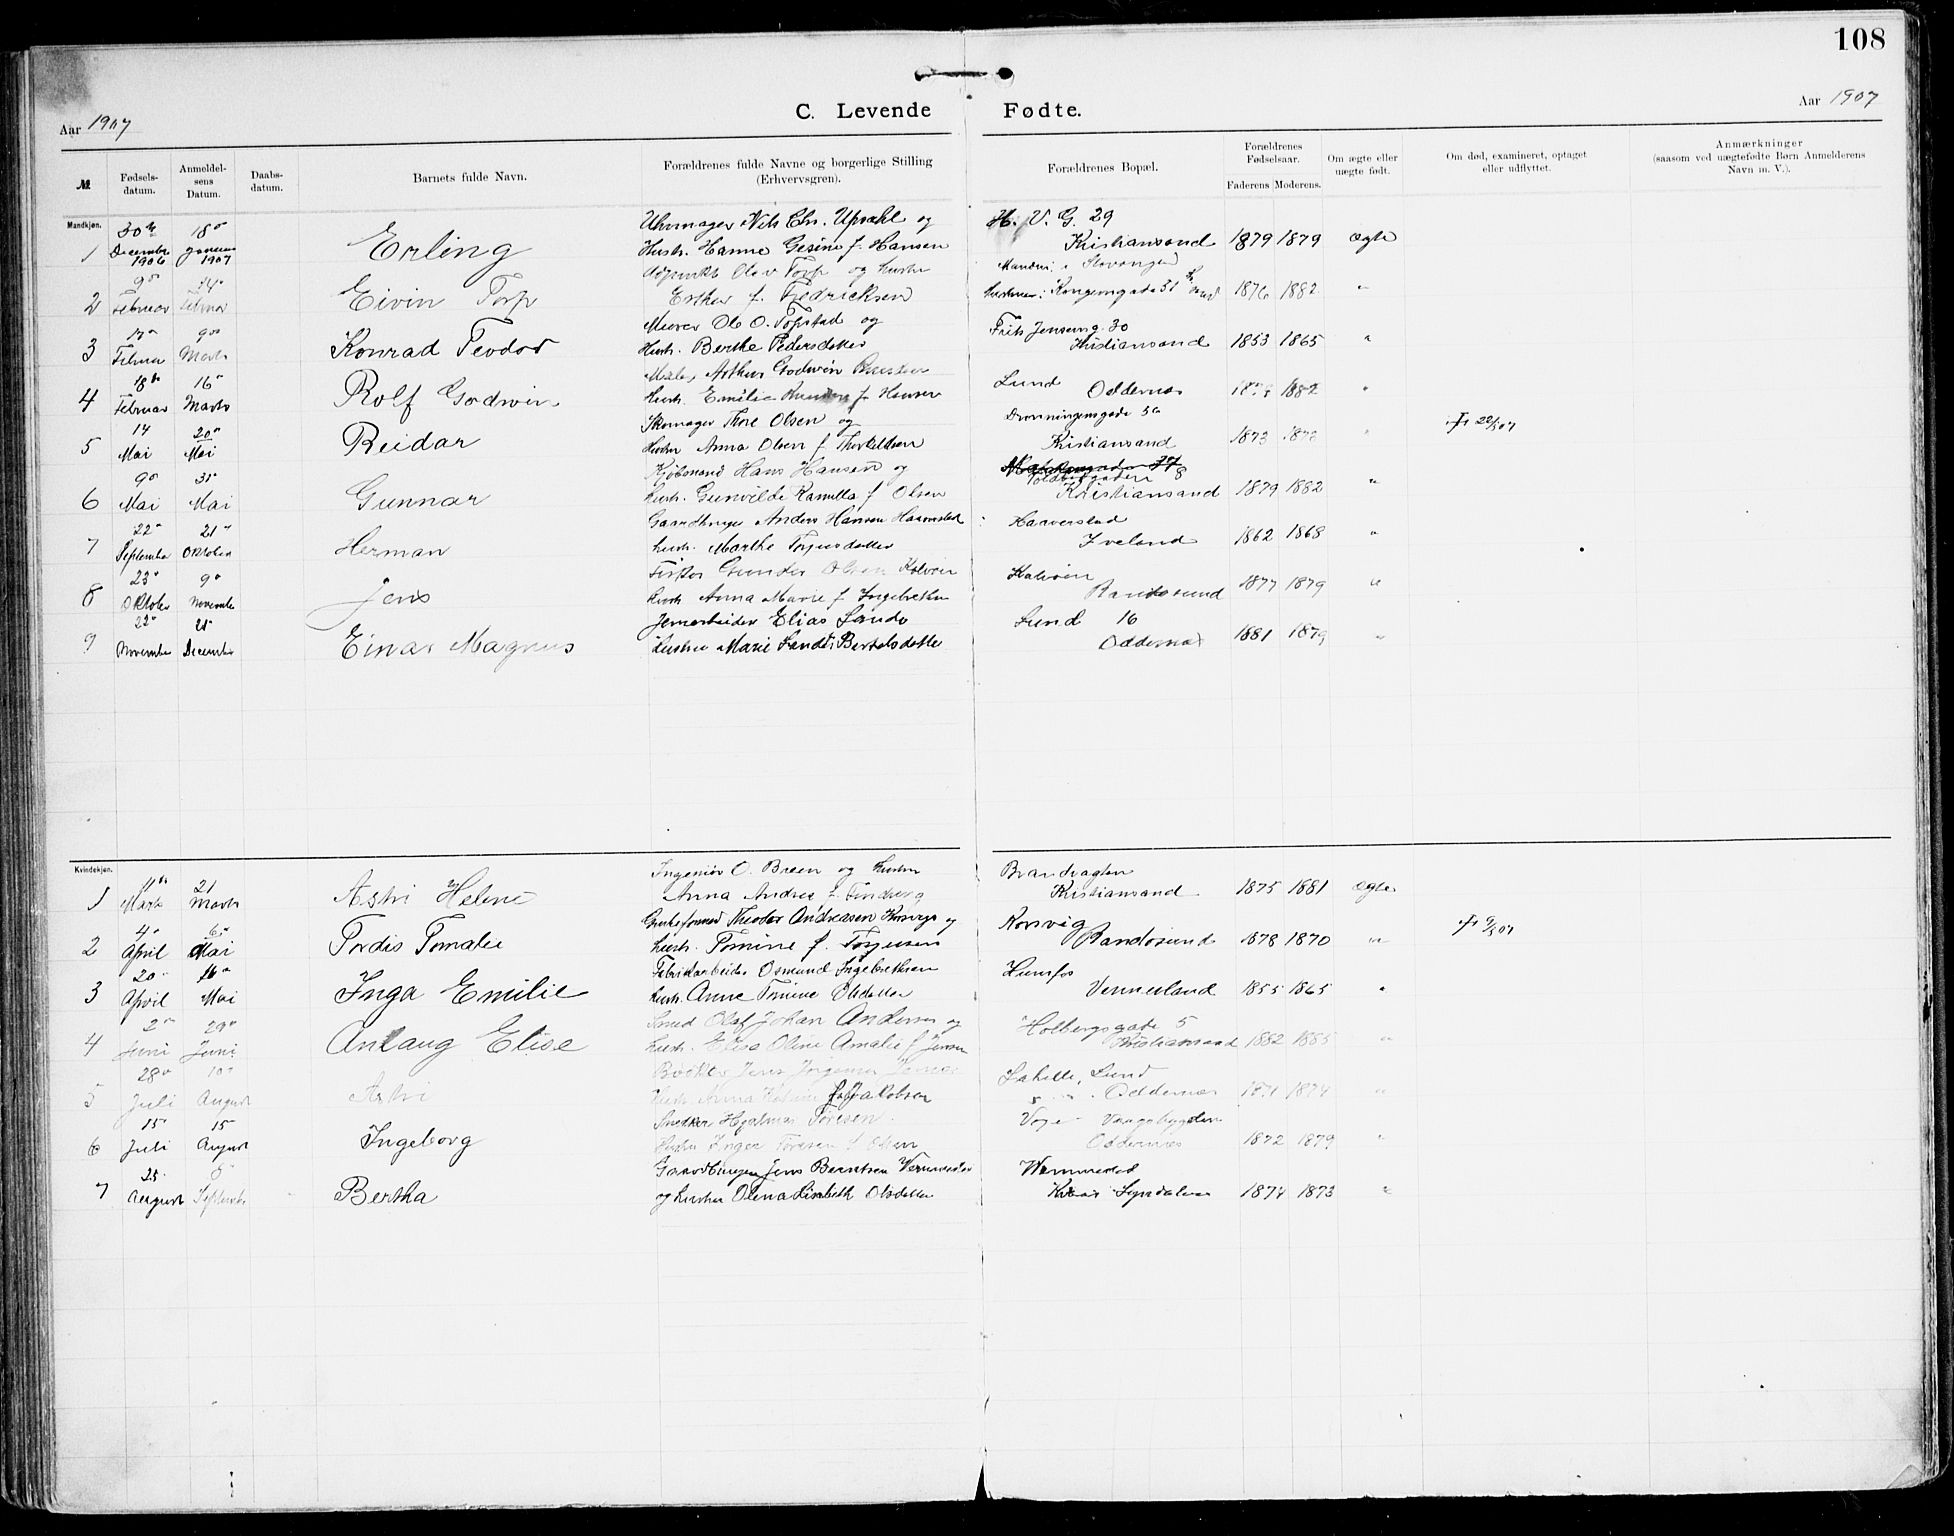 108
Aar 1907
C. Levende Fødte.
Aar 1907
№
Fødsels-datum.
Anmeldel-sens Datum.
Daabs-datum.
Barnets fulde Navn.
Forældrenes fulde Navne og borgerlige Stilling
(Erhvervsgren).
Forældrenes Bopæl.
Forældrenes Fødselsaar.
Faderens Moderens.
Om ægte eller uægte født.
Om død, examineret, optaget eller udflyttet.
Anmærkninger
(saasom ved uægtefødte Børn Anmelderens Navn m. V.).
Mandkjøn.
1 30te December 1906 18de 1907 Erling
Uhrmager Nils Chr. Upsahl og
Hustr. Hanne Gesine f. Hansen
H. V. G. 29
Kristiansand 1879 1879 ægte
2 9de Februar 14 Februar Eivin Torp
Olav Torp og hustru
Esther f. Fredricksen
Manden i Stavanger
Hustruen: Kongensgade 51 1876 1882 "
3 17 Februar 9de Marts Konrad Teodor
Murer Ole O. Topstad og
Hustr. Berthe Pedersdatter
Frits Jensens g. 30
Kristiansand 1853 1865 "
4 18de Februar 16 Marts Rolf Godwin
Maler Arthur Godwin
Hustr. Emilie f. Hansen
Lund Oddernæs 1882 "
5 14 Mai 20de Mai Reidar
Skomager Thore Olsen og
Hustru Anna Olsen f. Thorkildsen
Dronningensgade 56
Kristiansand 1873 1872 "
6 9de Mai 31 Mai Gunnar
Kjøbmand Hans Hansen og
hustr. Gunvilde Kamilla f. Olsen
8
Kristiansand 1879 1882 "
7 22 September 21 Oktober Herman
Gaardbruger Anders Hansen Haaverstad
hustr. Marthe Torjusdatter
Haaverstad
Iveland 1862 1868 "
8 23 Oktober 9de November Jens
Gunder Olsen
hustr. Anna Marie f. Ingebretsen
Randøsund 1877 1879 "
9 22 November 21 December Einar Magnus
Jernarbeider Elias Sando
hustru Marie Sando Bertelsdatter
Lund 16
Oddernæs 1881 1879 "
Kvindekjøn.
1 11te Marts 21 Marts Astri Helene
Ingeniør O. Breen og hustru
Anna Andrea f. Lindberg
Brandvagten
Kristiansand 1875 1881 ægte
2 4de April 6de Mai Tordis Tomalie
Theodor Andreasen Korsvig og
hustr. Tomine f. Torjussen
Korsvig
Randøsund 1878 1870 "
3 20 April 16 Mai Inga Emilie
Fabrikarbeider Osmund Ingebretsen
hustr. Anne Tomine Olsdatter
Hunsfos
Vennesland 1855 1865 "
4 2 Juni 29de Juni Anlaug Elise
Smed Olaf Johan Andersen og
hustr. Elisa Oline Amalie f. Jensen
Holbergsgade 5
Kristiansand 1882 1885 "
5 28de Juli 10 August Astri
Jens Jørgensen
hustr. Anna f. Jakobsen
Lund
Oddernæs 1871 1874 "
6 15 Juli 15 August Ingeborg
Snedker Hjalmar Toresen
Hustru Inger Toresen f. Olsen
Oddernæs 1872 1879 "
7 25 August September Bertha
Gaardbruger Jens Berntsen
og hustru Olena Lisabeth Olsdatter
1874 1873 "